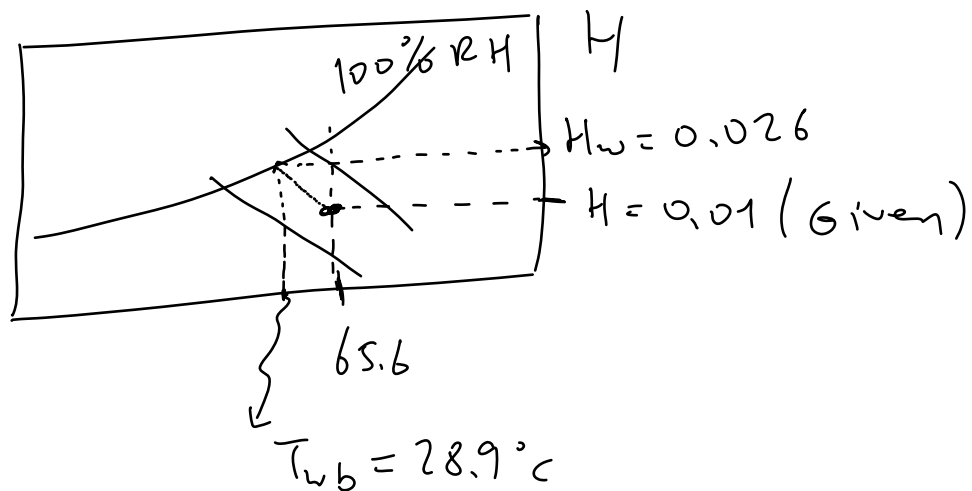 100% RH
H
Hw = 0.026
H = 0.01 (Given)
65.6
Twb = 28.9°c